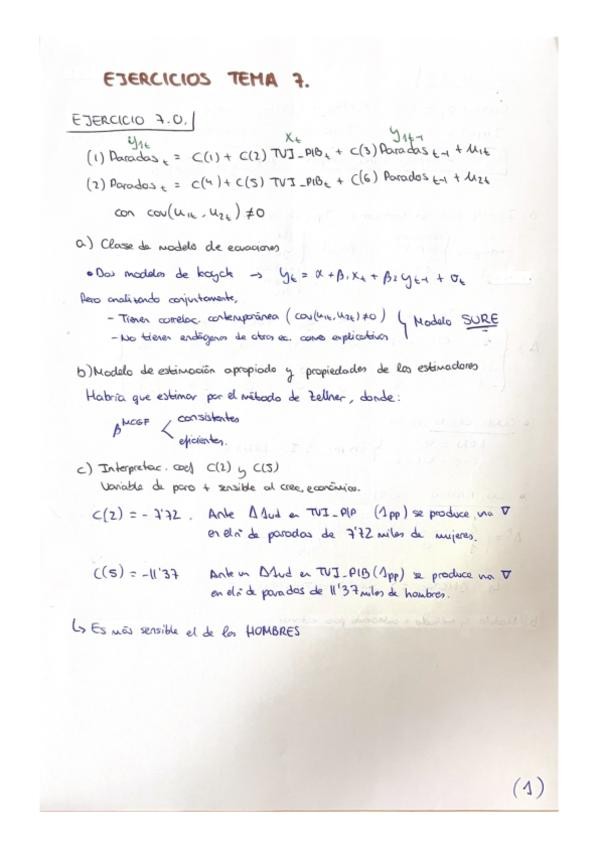 EJERCICIOS TEMA 7.
EJERCICIO 7.0.
y1t Xt y1t-1
(1) Paradas t = C(1) + C(2) TVI_PIB t + C(3) Paradas t-1 + u1t
(2) Parados t = C(4) + C(5) TVI_PIB t + C(6) Parados t-1 + u2t
con cov(u1t, u2t) ≠ 0
a.) Clase de modelo de ecuaciones
• Dos modelos de koyck → yt = α + β1 Xt + β2 yt-1 + υt
Pero analizando conjuntamente,
- Tienen correlac. contemporánea (cov(u1t, u2t) ≠ 0) } Modelo SURE
- No tienen endógenas de otras ec. como explicativas
b) Modelo de estimación apropiado y propiedades de los estimadores
Habría que estimar por el método de Zellner, donde:
β MCGF < consistentes
eficientes.
c) Interpretac. coef C(2) y C(5)
Variable de paro + sensible al crec. económico.
C(2) = -7'72. Ante Δ 1ud en TVI_PIB (1pp) se produce una ∇
en el nº de paradas de 7'72 miles de mujeres.
C(5) = -11'37 Ante un Δ1ud en TVI_PIB (1pp) se produce una ∇
en el nº de parados de 11'37 miles de hombres.
↳ Es más sensible el de los HOMBRES
(1)